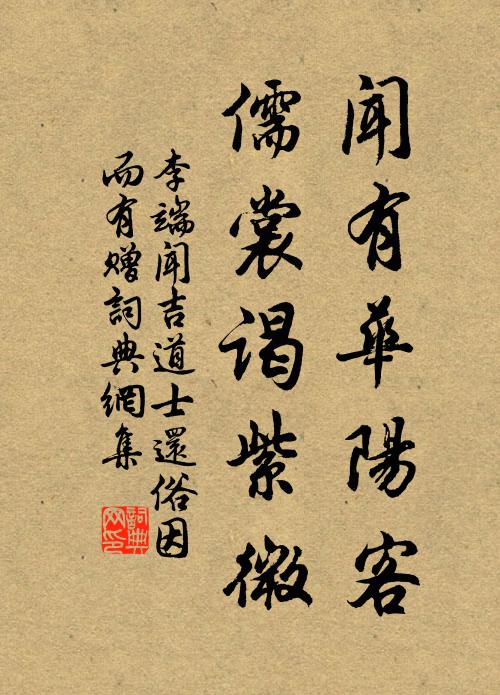 聞有華陽客
儒裳謁紫微
李端聞吉道士還俗因
而有贈詞典網集
詞典网印